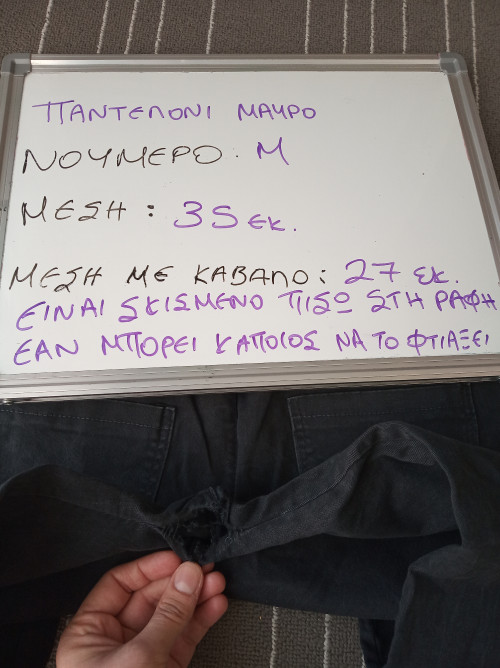 ΠΑΝΤΕΛΟΝΙ ΜΑΥΡΟ
ΝΟΥΜΕΡΟ. Μ
ΜΕΣΗ : 35 εκ.
ΜΕΣΗ ΜΕ ΚΑΒΑΛΟ: 27 εκ.
ΕΙΝΑΙ ΣΚΙΣΜΕΝΟ ΠΙΣΩ ΣΤΗ ΡΑΦΗ
ΕΑΝ ΜΠΟΡΕΙ ΚΑΠΟΙΟΣ ΝΑ ΤΟ ΦΤΙΑΞΕΙ